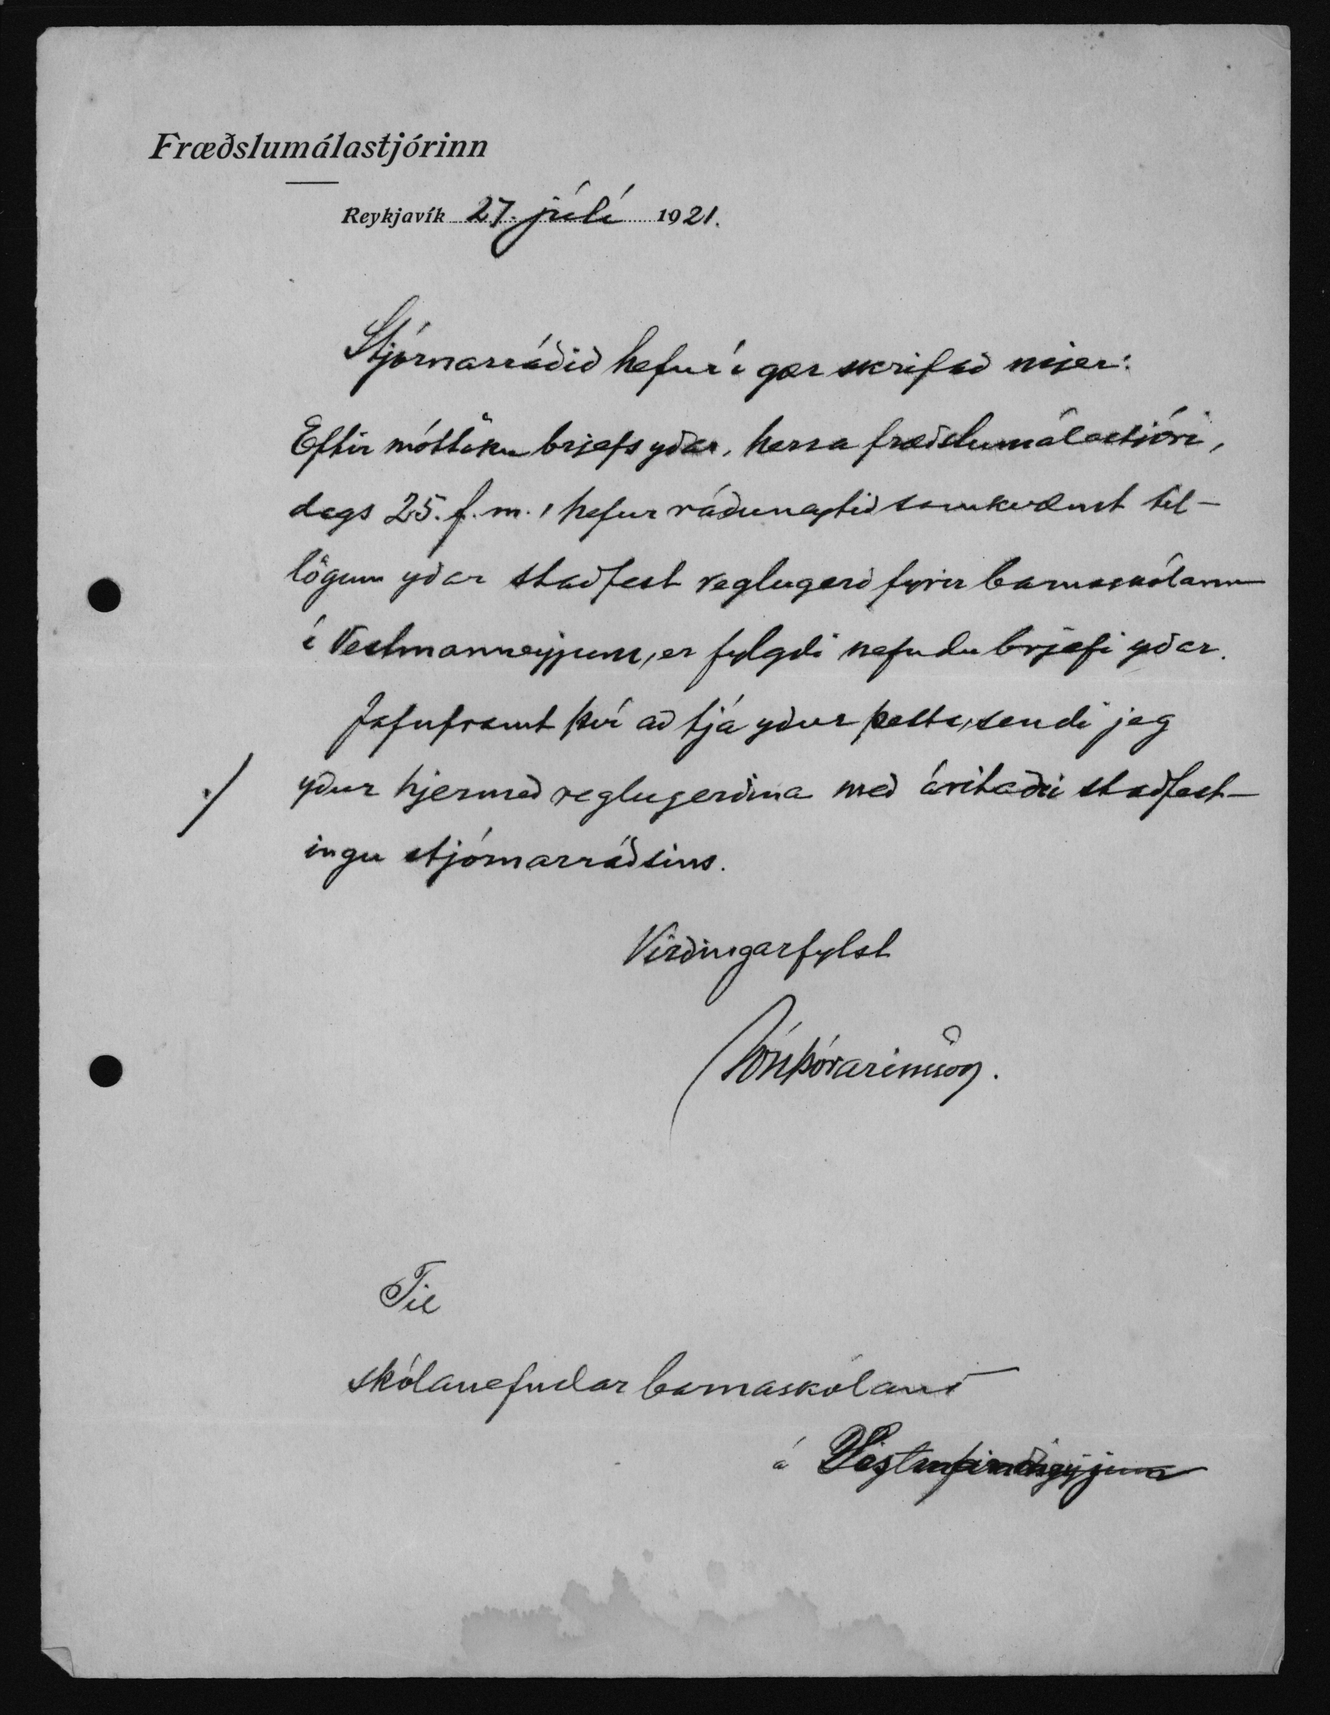 Fræðslumálastjórinn
Reykjavík 27. júlí 1921.
Stjórnarráðið hefur í gær skrifað mjer:
Eftir móttöku brjefs yðar, herra fræðslumálastjóri,
dags 25. f. m., hefur ráðuneytið samkvæmt til-
lögum yðar staðfest reglugerð fyrir barnaskólann
í Vestmanneyjum, er fylgdi nefndu brjefi yðar.
Jafnframt því að tjá yður þetta, sendi jeg
./ yður hjermeð reglugerðina með áritaðri staðfest-
ingu stjórnarráðsins.
Virðingarfylst
Jón Þórarinsson.
Til
skólanefndar barnaskólans
á Vestmannaeyjum